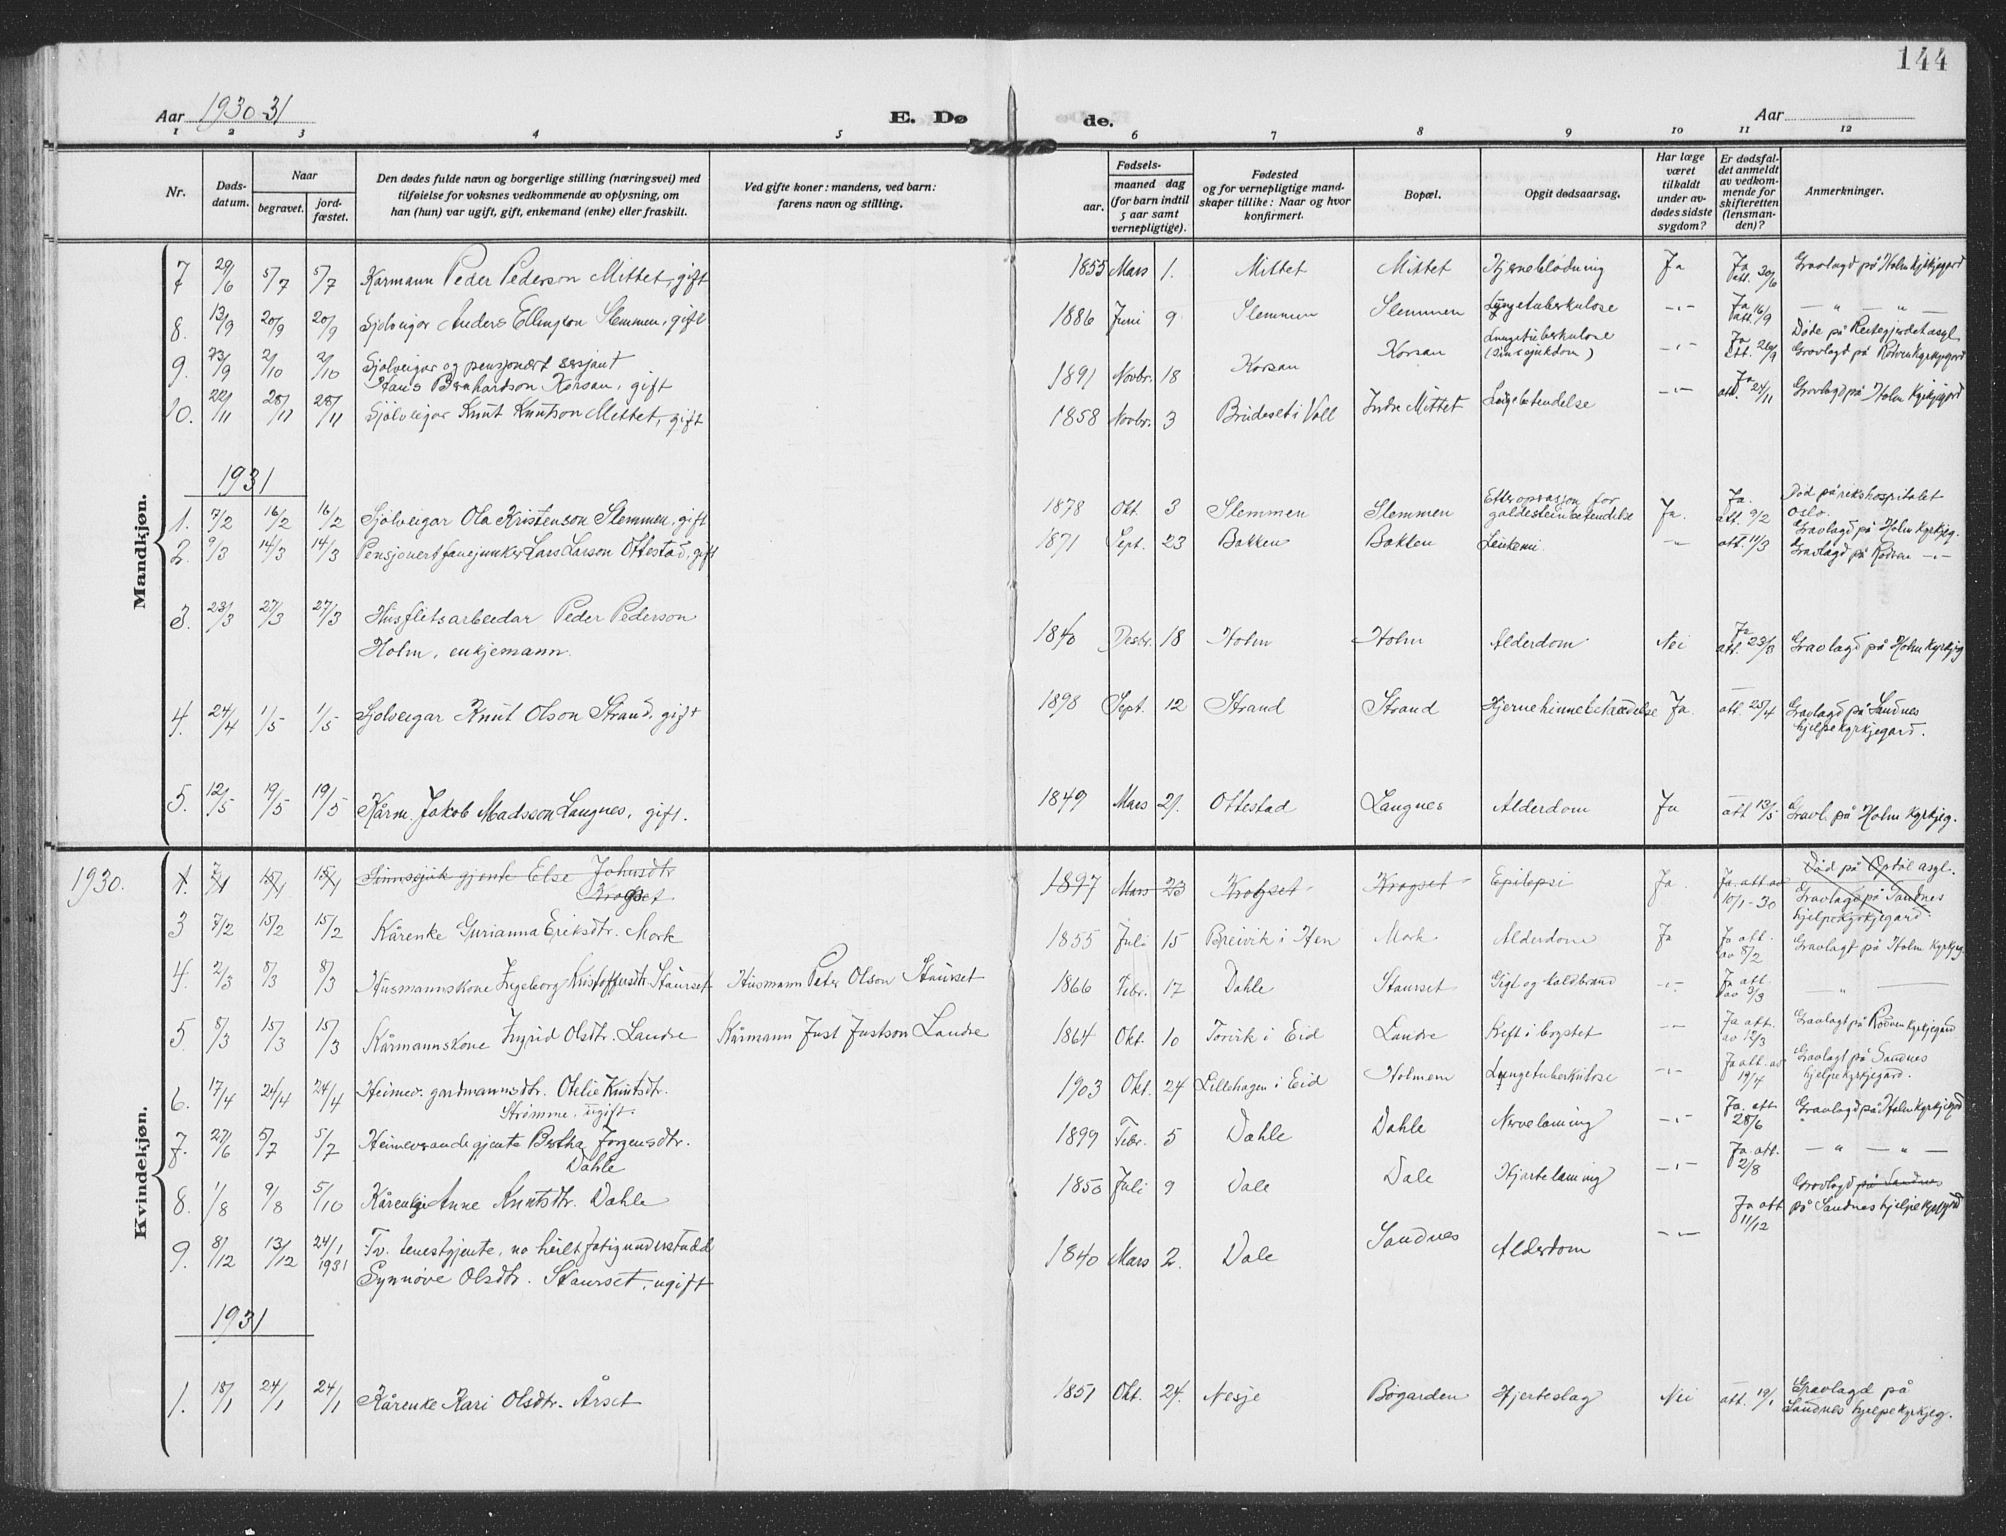 144
Aar 1930-31
E. Dø
de.
Aar
1 2 3 4 5 6 7 8 9 10 11 12
Nr.
Døds-
datum.
Naar
begravet.
jord-
fæstet.
Den dødes fulde navn og borgerlige stilling (næringsvei) med
tilføielse for voksnes vedkommende av oplysning, om
han (hun) var ugift, gift, enkemand (enke) eller fraskilt.
Ved gifte koner: mandens, ved barn:
farens navn og stilling.
Fødsels-
aar.
maaned dag
(for barn indtil
5 aar samt
vernepligtige).
Fødested
og for vernepligtige mand-
skaper tillike: Naar og hvor
konfirmert.
Bopæl.
Opgit dødsaarsag.
Har læge
været
tilkaldt
under av-
dødes sidste
sygdom?
Er dødsfal-
det anmeldt
av vedkom-
mende for
skifteretten
(lensman-
den)?
Anmerkninger.
Mandkjøn.
7 29/6 5/7 5/7 Kårmann Peder Pederson Mittet, gift 1855 Mars 1. Mittet Mittet Hjerneblödning Ja Ja att. 30/6 Gravlagd på Holm kyrkjegard
8. 13/9 20/9 20/9 Sjölveigar Anders Ellingson Slemmen, gift 1886 Juni 9 Slemmen Slemmen Lungetuberkulose -"- Ja att. 16/9 — " — " —
9. 23/9 2/10 2/10 Sjölveigar og pensjonert sersjant
Hans Bernhardson Korsan, gift 1891 Novbr. 18 Korsan Korsan Lungetuberkulose
(Sinnsjukdom) -"- Ja att. 26/9 Døde på Reitegjerdet asyl
Gravlagd på Rödven kyrkjegard
10. 22/11 28/11 28/11 Sjölveigar Knut Knutson Mittet, gift 1858 Novbr. 3 Brudeset i Voll Indre Mittet Lungebetendelse -"- Ja att. 24/11 Gravlagd på Holm kyrkjegard
1931
1. 7/2 16/2 16/2 Sjölveigar Ola Kristenson Slemmen, gift 1878 Okt. 3 Slemmen Slemmen Etter oprasjon for
galdesteinbetendelse Ja. Ja. att. 9/2 Död på rikshospitalet
Oslo.
Gravlagd på Holm kyrkjeg.
2. 9/3 14/3 14/3 Pensjonert fanejunker Lars Larson Ottestad, gift 1871 Sept. 23 Bakken Bakken Leukemi -"- att. 11/3 Gravlagd på Rödven -"-
3. 23/3 27/3 27/3 Husflitsarbeidar Peder Pederson
Holm, enkjemann. 1840 Desbr. 18 Holm Holm Alderdom Nei Ja att. 23/3 Gravlagd på Holm kyrkjeg
4. 24/4 1/5 1/5 Sjolveigar Knut Olson Strand, gift 1898 Sept. 12 Strand Strand Hjernehinnebetændelse Ja. att. 25/4 Gravlagd på Sandnes
hjelpekyrkjegard.
5. 12/5 19/5 19/5 Kårm. Jakob Madsson Langnes, gift. 1849 Mars 21. Ottestad Langnes Alderdom Ja att 13/5 Gravl. på Holm kyrkjeg.
Kvindekjøn.
1930.
1. 15/1 15/1 Sinnssjuk gjente Else Johnsdtr
Krogset 1897 Mars 23 Krogset Krogset Epilepsi Ja Ja. att av
10/1-30 Død på Opdöl asyl.
Gravlagd på Sandnes
hjelpekyrkjegard.
3 7/2 15/2 15/2 Kårenke Gurianna Eriksdtr. Mork 1855 Juli 15 Breivik i Hen Mork Alderdom Ja Ja att.
av 8/2 Gravlagt på Holm kyrkjeg.
4. 2/3 8/3 8/3 Husmannskone Ingeborg Kristoffersdtr. Staurset Husmann Peter Olson Staurset 1866 Febr. 17 Dahle Staurset Gigt og koldbrand -"- Ja att.
av 3/3 — " —
5 8/3 15/3 15/3 Kårmannskone Ingrid Olsdtr. Landre Kårmann Just Justson Landre 1864 Okt. 10 Torvik i Eid Landre Kreft i brystet -"- Ja att.
av 12/3 Gravlagt på Rödven kyrkjegård
6. 17/4 24/4 24/4 Heimev. gardmannsdtr. Otelie Knutsdtr.
Strømme, ugift. 1903 Okt. 24 Lillehagen i Eid Holmem Lungetuberkulose -"- Ja att. av
19/4 Gravlagt på Sandnes
hjelpekyrkjegard.
7. 27/6 5/7 5/7 Heimeverande gjente Bertha Jorgensdtr.
Dahle 1899 Febr. 5 Dahle Dahle Nervelaming -"- Ja. att
28/6 Gravlagd på Holm kyrkjegård
8. 1/8 9/8 5/10 Kårenkje Anne Knutsdtr. Dahle 1850 Juli 9 Dale Dale Hjartelaming -"- Ja. att.
2/8 — " — " —
9. 8/12 13/12 24/1 1931 Fv. tenestgjente, no heilt fatigunderstudd
Synnöve Olsdtr. Staurset, ugift 1840 Mars 2. Dale Sandnes Alderdom -"- Ja att
11/12 Gravlagd på Sandnes
på Sandnes hjelpekyrkjegård
1931
1. 18/1 24/1 24/1 Kårenke Kari Olsdtr. Årset 1851 Okt. 24. Nesje Bøgarden Hjerteslag Nei att. 19/1 Gravlagd på
Sandnes hjelpekyrkjeg.